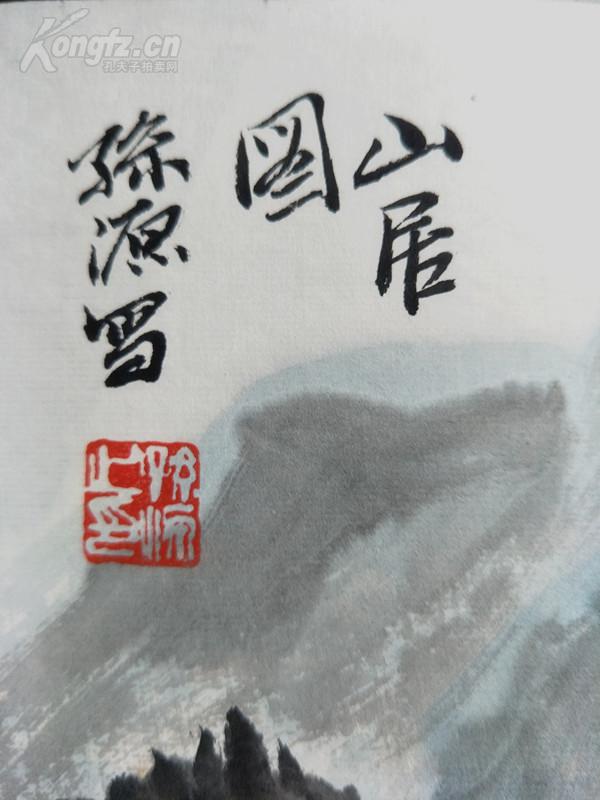 Kongfz.cn
孔夫子拍卖网
山居
图
孙源写
孙源之印